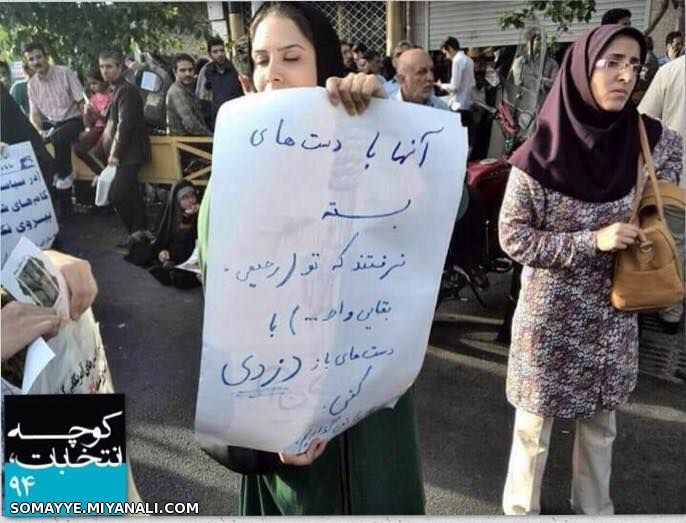 آنها با دست‌های
بسته
نرفتند که تو (رحیمی،
بقایی و او...) با
دست‌های باز دزدی
کنی.
در سیاست
گام‌های
نیروی
کوچه
انتخابات،
۹۴
SOMAYYE.MIYANALI.COM